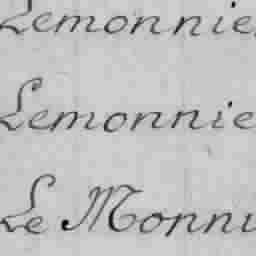 Lemonnie
Lemonnie
Le Monni